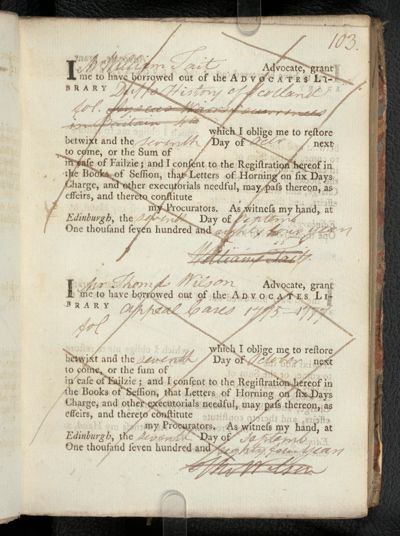 103.
I Mr William Tait Advocate, grant
me to have borrowed out of the ADVOCATES LI-
BRARY Duff's History of Scotland
fol.
in Britain
which I oblige me to reſtore
betwixt and the seventh Day of Octr next
to come, or the Sum of
in caſe of Failzie; and I conſent to the Regiſtration hereof in
the Books of Seſſion, that Letters of Horning on ſix Days
Charge, and other executorials needful, may paſs thereon, as
effeirs, and thereto conſtitute
my Procurators. As witneſs my hand, at
Edinburgh, the seventh Day of Septembr
One thouſand ſeven hundred and eighty four years
William Tait
I Mr Thomas Wilson Advocate, grant
me to have borrowed out of the ADVOCATES LI-
BRARY Appeal Cases 1795
fol
which I oblige me to reſtore
betwixt and the seventh Day of October next
to come, or the ſum of
in caſe of Failzie; and I conſent to the Regiſtration hereof in
the Books of Seſſion, that Letters of Horning on ſix Days
Charge, and other executorials needful, may paſs thereon, as
effeirs, and thereto conſtitute
my Procurators. As witneſs my hand, at
Edinburgh, the seventh Day of Septembr
One thouſand ſeven hundred and eighty four years
Tho Wilson